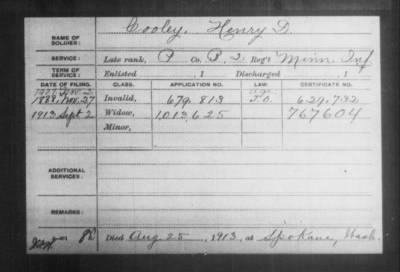 Cooley, Henry D.
NAME OF
SOLDIER:
SERVICE: Late rank, P Co. P, 2 Reg't Minn Inf
TERM OF
SERVICE: Enlisted , 1 Discharged , 1
DATE OF FILING. CLASS. APPLICATION NO. LAW. CERTIFICATE NO.
1888, Nov. 27 Invalid, 679.813 629.732
1913 Sept 2 Widow, 1013.625 767604
Minor,
ADDITIONAL
SERVICES:
REMARKS:
Died Aug 25, 1913, at Spokane, Wash.